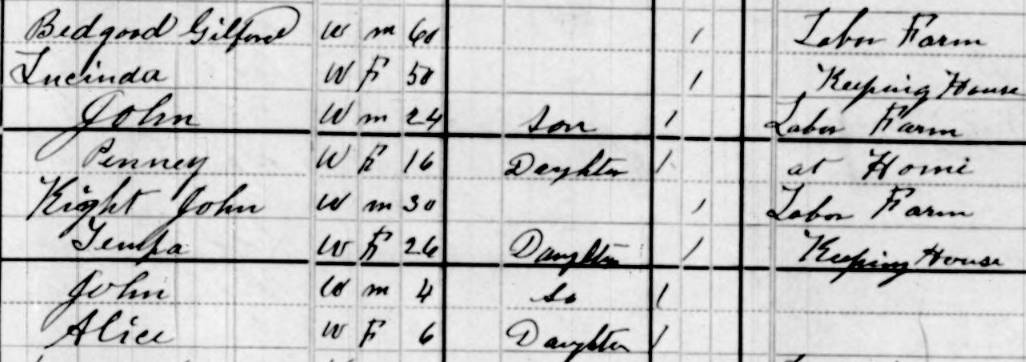 Bedgood Gilford W m 60 / Labor Farm
Lucinda W F 50 / Keeping House
John W m 24 son / Labor Farm
Penney W F 16 Daughter / at Home
Kight John W m 30 / Labor Farm
Tempa W F 26 Daughter / Keeping House
John W m 4 So /
Alice W F 6 Daughter /